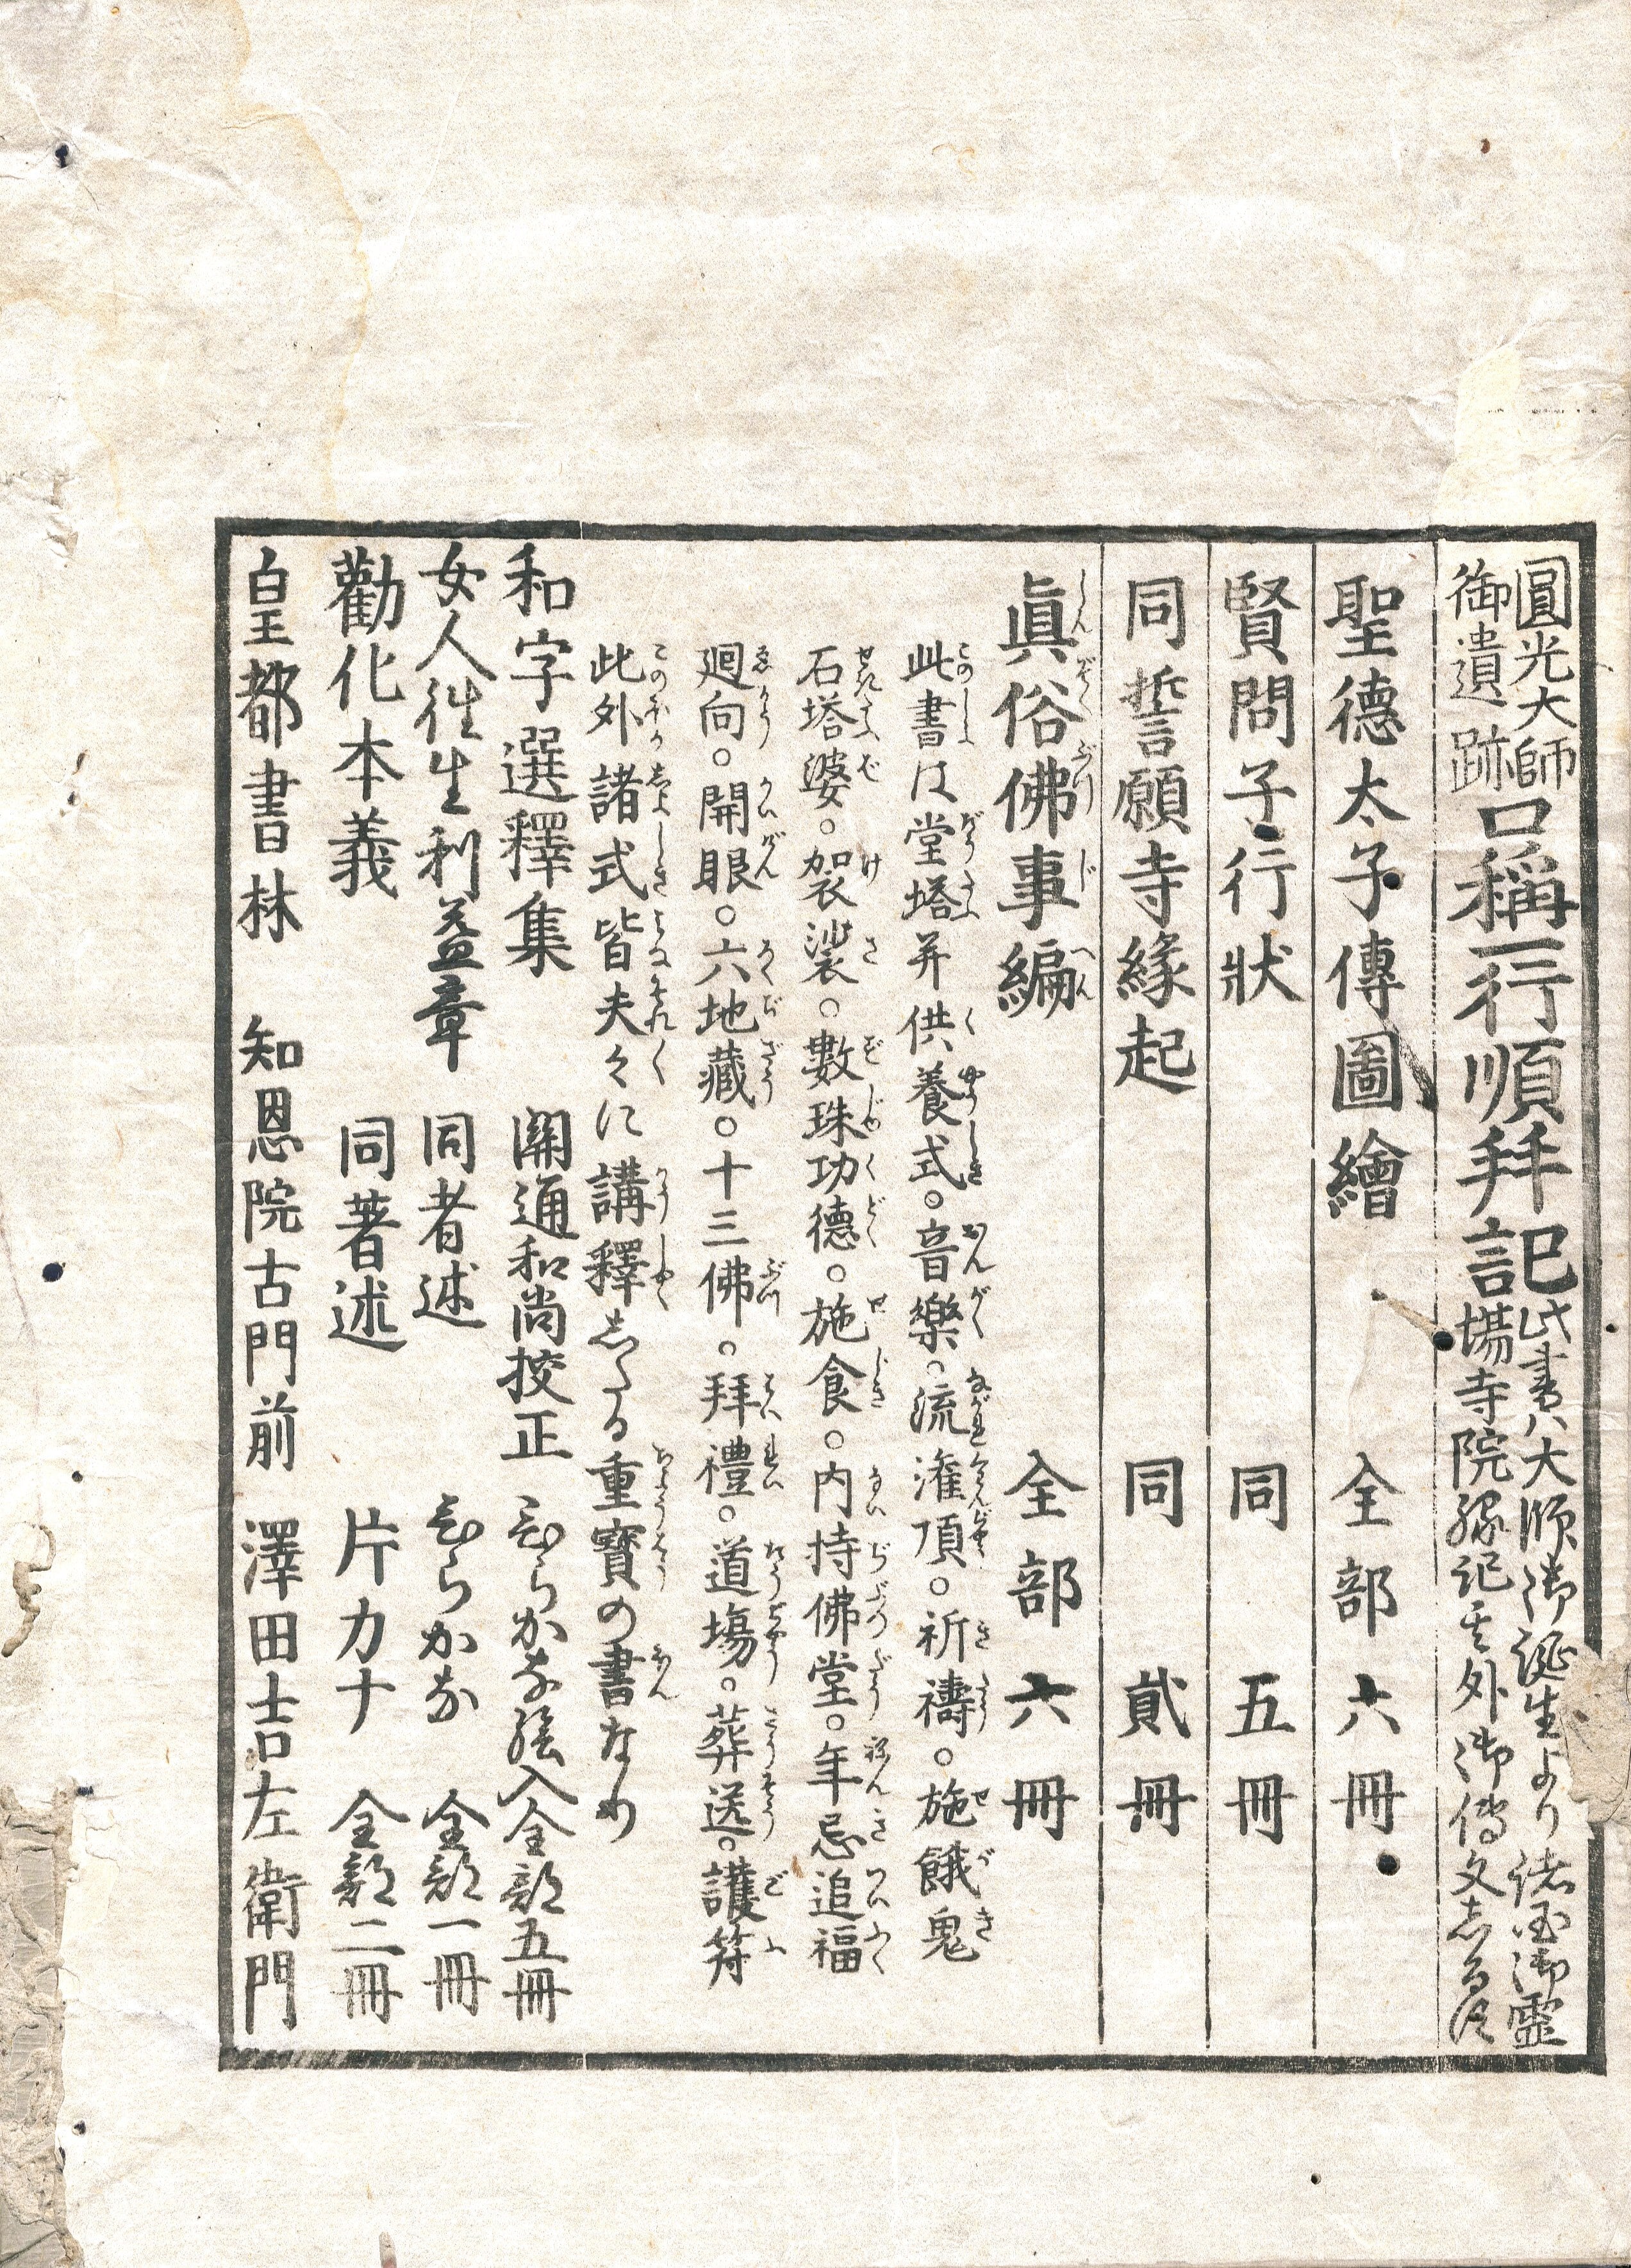 圓光大師
御遺跡
口稱一行順拜記
此書ハ大師御誕生より諸国御靈
場寺院縁記其外御傳文志るす
聖德太子傳圖繪 全部六冊
賢問子行狀 同五冊
同誓願寺緣起 同貳冊
眞俗佛事編 全部六冊
此書は堂塔并供養式。音樂。流潅頂。祈禱。施餓鬼
石塔婆。袈裟。數珠功德。施食。内持佛堂。年忌追福
廻向。開眼。六地藏。十三佛。拜禮。道場。葬送。護符
此外諸式皆夫々に講釋志たる重寳の書なり
和字選釋集 關通和尚挍正 ひらかな絵入全部五冊
女人徃生利益章 同著述 ひらかな 全部一冊
勸化本義 同著述 片カナ 全部二冊
皇都書林 知恩院古門前 澤田吉左衛門